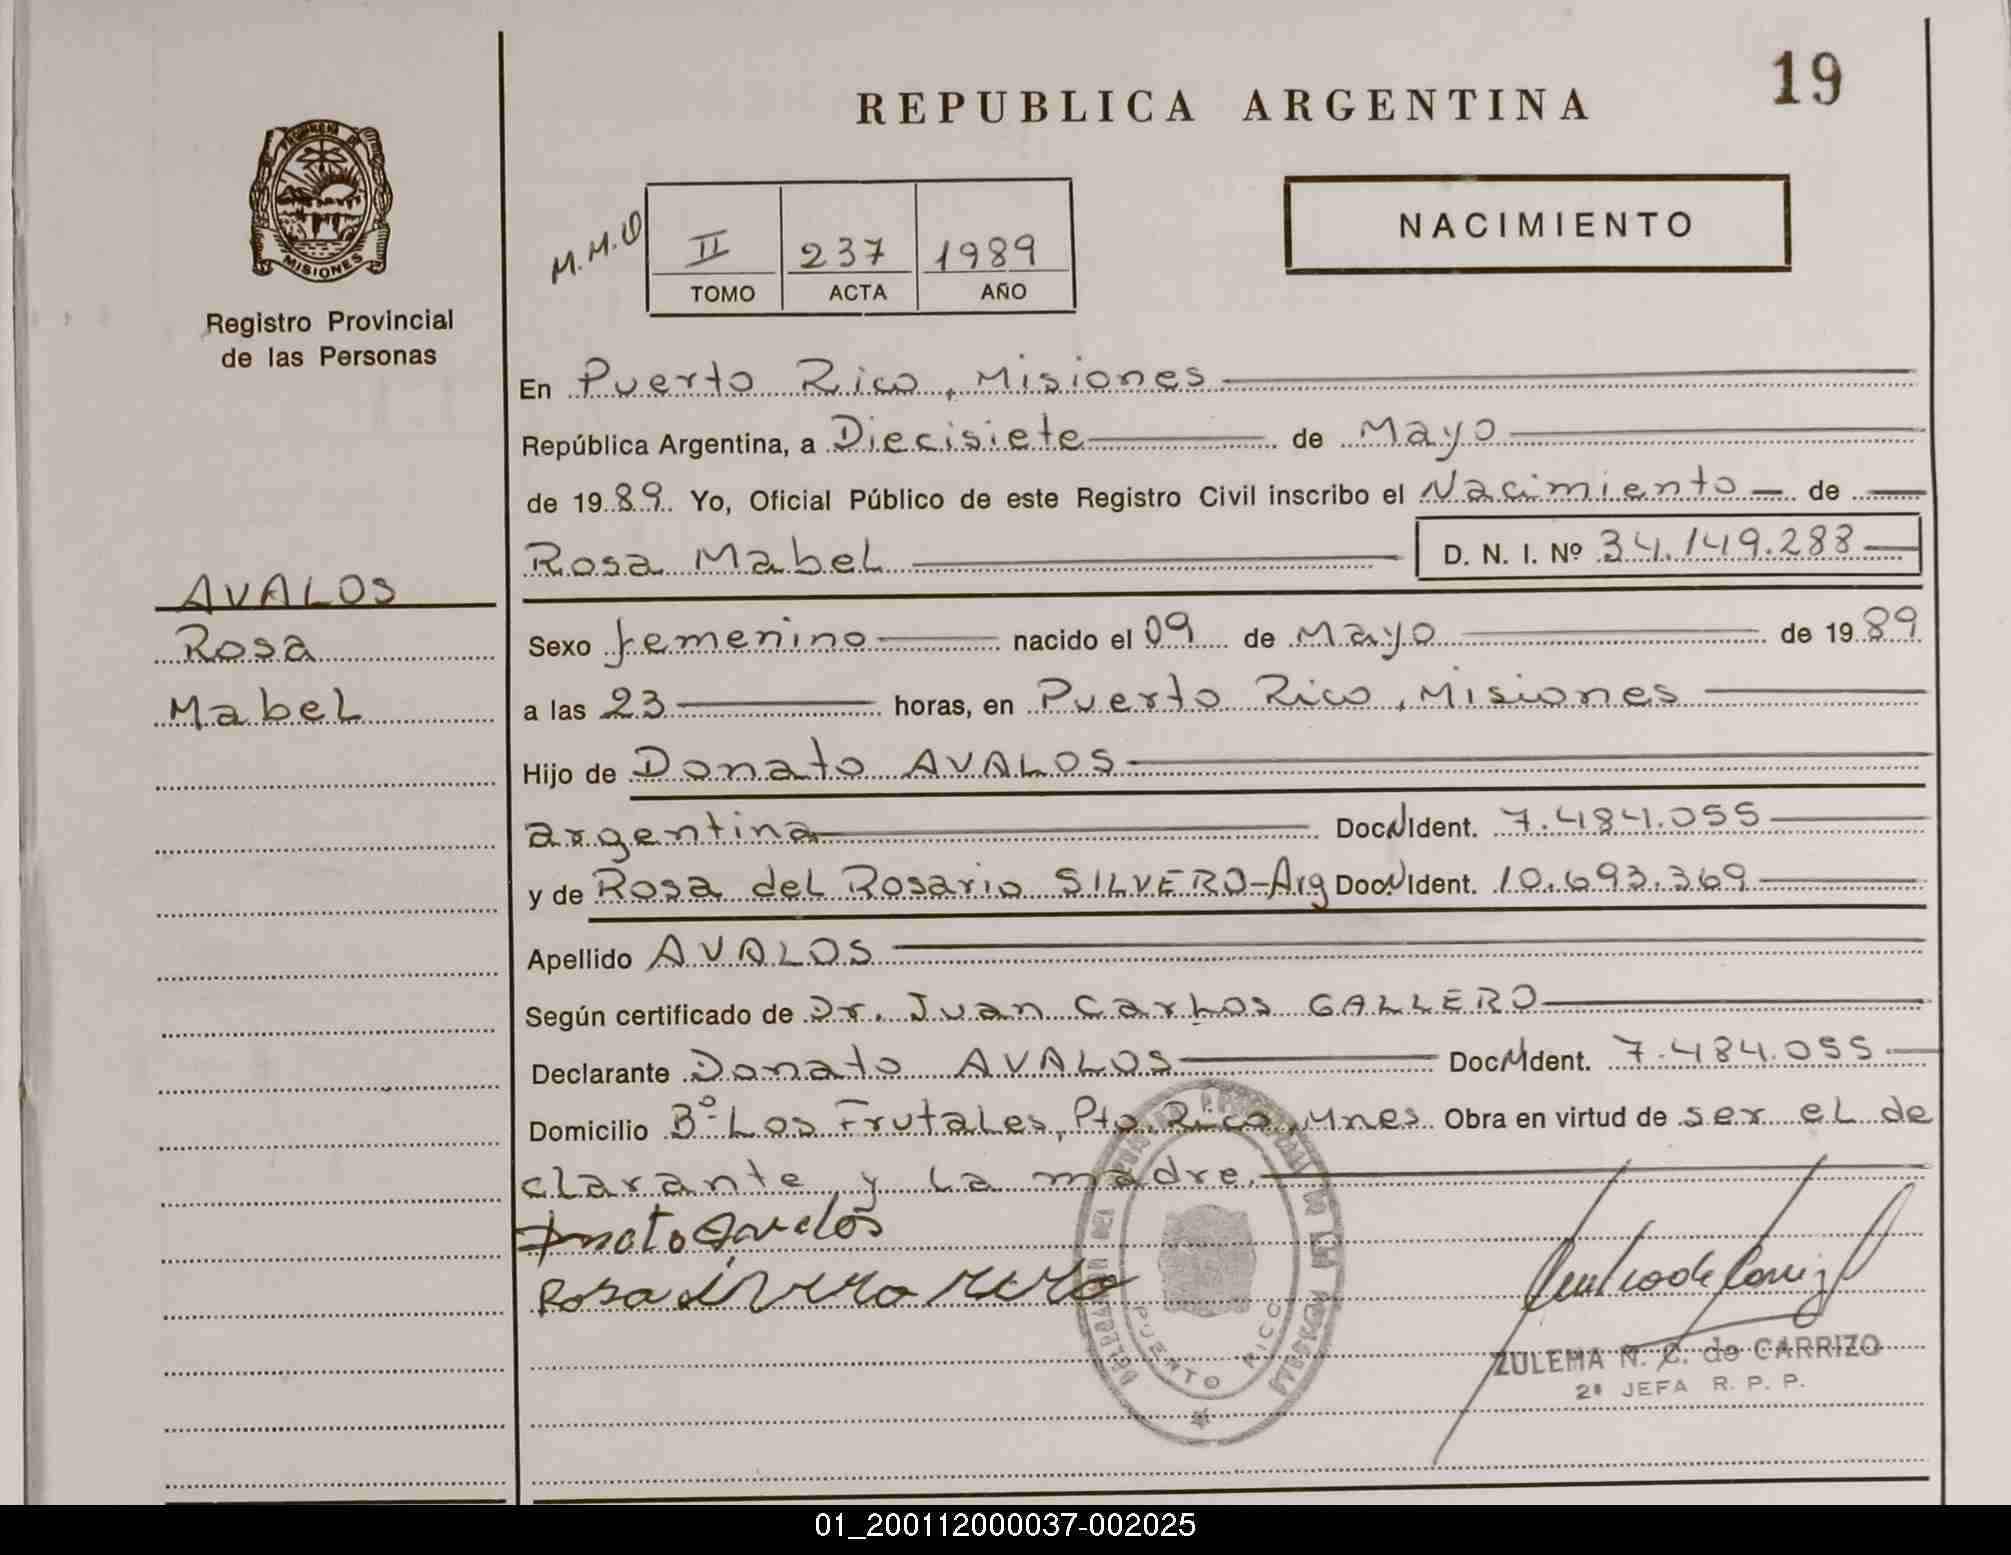 19
REPUBLICA ARGENTINA
NACIMIENTO
M.M.O
II 237 1989
TOMO ACTA AÑO
PROVINCIA DE
MISIONES
Registro Provincial
de las Personas
AVALOS
Rosa
Mabel
En Puerto Rico, Misiones
República Argentina, a Diecisiete de Mayo
de 1989. Yo, Oficial Público de este Registro Civil inscribo el Nacimiento de
Rosa Mabel D. N. I. Nº 34.149.288
Sexo femenino nacido el 09 de Mayo de 1989
a las 23 horas, en Puerto Rico, Misiones
Hijo de Donato AVALOS
argentina Doc.N.Ident. 7.484.055
y de Rosa del Rosario SILVERO-Arg Doc.N.Ident. 10.693.369
Apellido AVALOS
Según certificado de Dr. Juan Carlos GALLERO
Declarante Donato AVALOS Doc.N.Ident. 7.484.055
Domicilio Bº Los Frutales, Pto. Rico, Mnes. Obra en virtud de ser el de
clarante y la madre.
Donato Avalos
PUERTO RICO
ZULEMA N. C. de CARRIZO
2ª JEFA R. P. P.
01_200112000037-002025